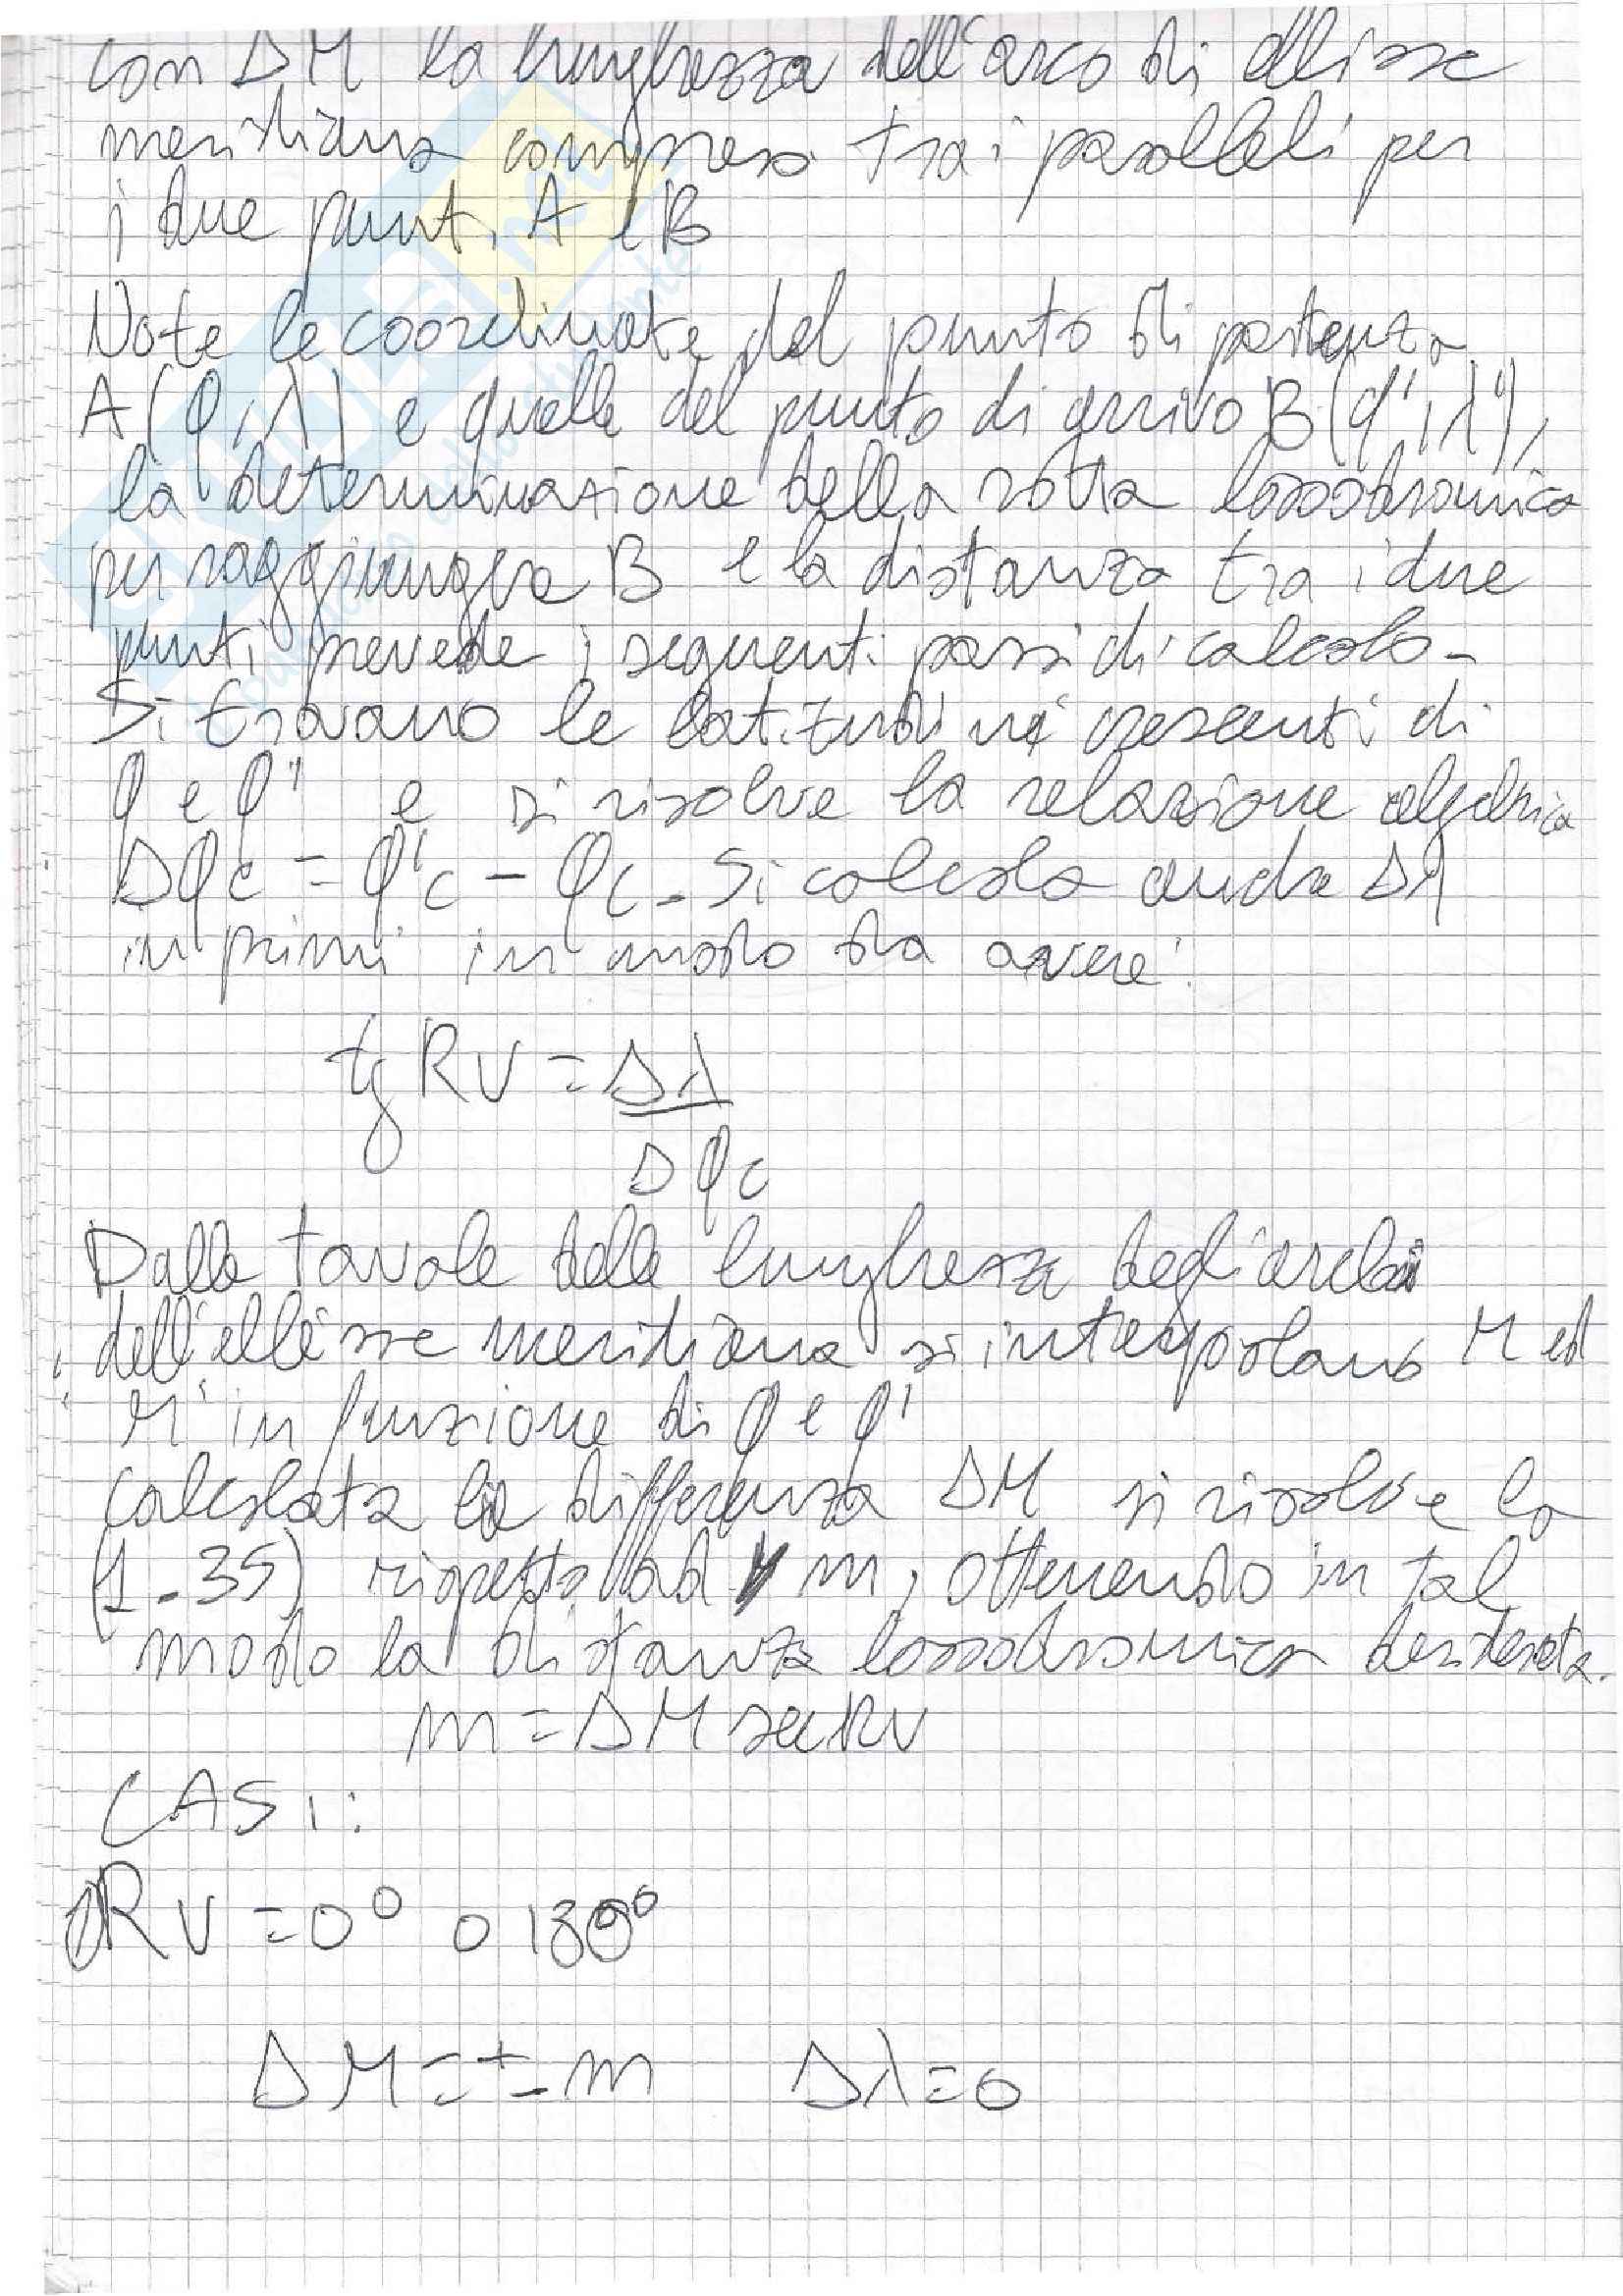 con ΔM la lunghezza dell'arco di ellisse
meridiana compreso tra i paralleli per
i due punti A e B
Note le coordinate del punto di partenza
A(φ,λ) e quelle del punto di arrivo B(φ',λ'),
la determinazione della rotta lossodromica
per raggiungere B e la distanza tra i due
punti prevede i seguenti passi di calcolo-
Si trovano le latitudini crescenti di
φ e φ' e si risolve la relazione algebrica
Δφc = φ'c - φc. Si calcola anche Δλ
in primi in modo da avere:
tg RV = Δλ
Δφc
Dalle tavole delle lunghezza degli archi
dell'ellisse meridiana si interpolano M ed
M' in funzione di φ e φ'
calcolata la differenza ΔM si risolve la
(1.35) rispetto ad m, ottenendo in tal
modo la distanza lossodromica desiderata.
m = ΔM sec RV
CASI:
RV = 0° o 180°
ΔM = ± m Δλ = 0